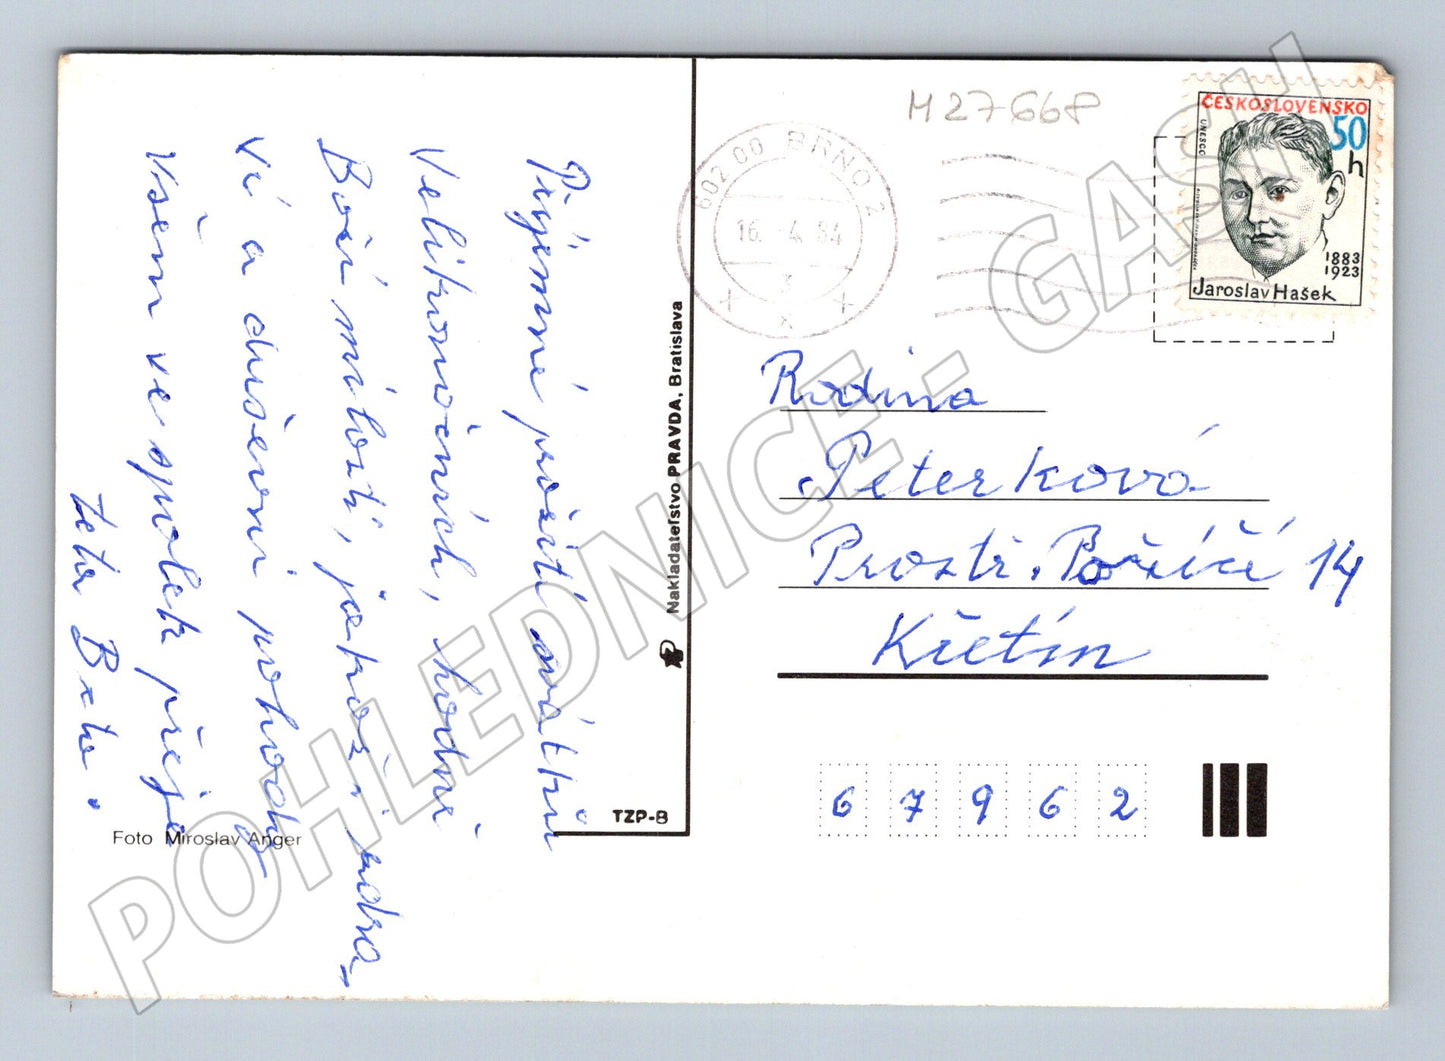 Příjemné prožití svátků
Velikonočních, hodně
Boží milosti, jakož i zdra-
ví a duševní pohody
Všem ve spolek přeje
teta Beta.
Foto Miroslav Anger
TZP-B
Nakladateľstvo PRAVDA, Bratislava
M27668
602 00 BRNO 2
16. -4. 84
ČESKOSLOVENSKO
50 h
UNESCO
1883
1923
Jaroslav Hašek
Rodina
Peterková
Prostř. Poříčí 14
Křetín
67962
POHLEDNICE - GASH